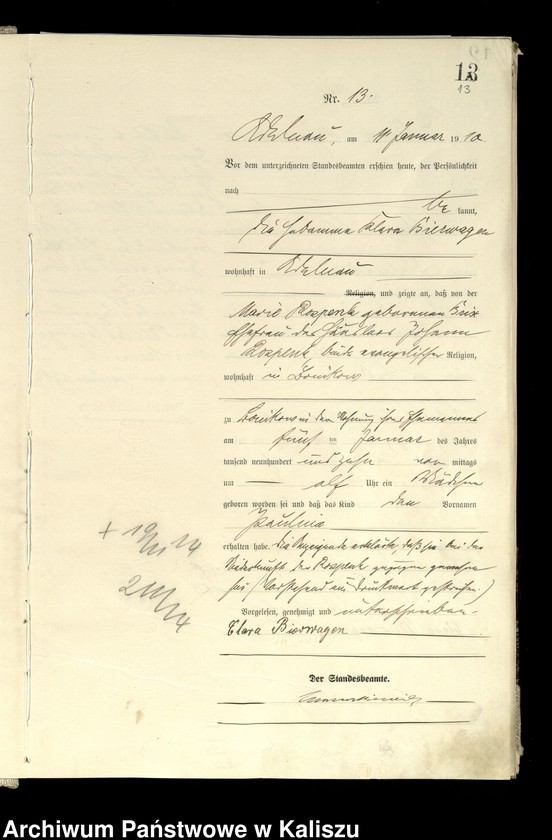 13
13
Nr. 13.
Adelnau, am 11 Januar 1910
Vor dem unterzeichneten Standesbeamten erschien heute, der Persönlichkeit
nach
be kannt,
die Hebamme Klara Bierwagen
wohnhaft in Adelnau
Religion, und zeigte an, daß von der
Marie Rospenk geborenen
Ehefrau des Häuslers Johann
Rospenk, beide evangelischer Religion,
wohnhaft in Bonikow
zu Bonikow in der Wohnung ihres Ehemannes
am fünf ten Januar des Jahres
tausend neunhundert und zehn vor mittags
um elf Uhr ein Mädchen
geboren worden sei und daß das Kind den Vornamen
Pauline
erhalten habe. Die Anzeigende erklärte, daß sie bei der
Niederkunft der Rospenk zugegen gewesen
sei. (Vorstehend ein Druckwort gestrichen.)
Vorgelesen, genehmigt und unterschrieben.
Clara Bierwagen
Der Standesbeamte.
Archiwum Państwowe w Kaliszu